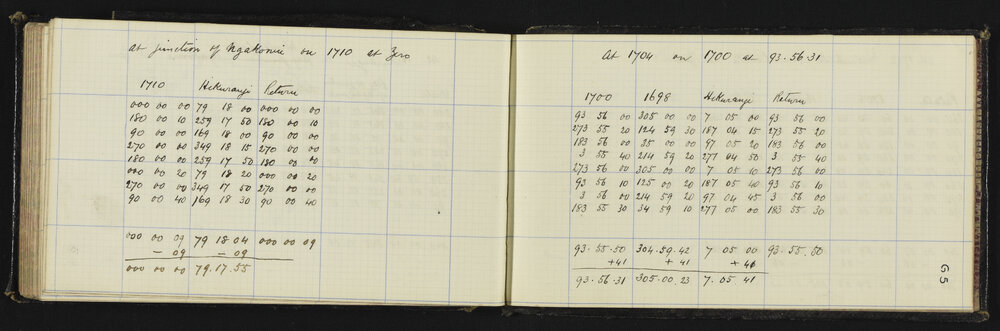 at junction of Ngakonui on 1710 at Zero
1710 Hikurangi Return
000 00 00 79 18 00 000 00 00
180 00 10 259 17 50 180 00 10
90 00 00 169 18 00 90 00 00
270 00 00 349 18 15 270 00 00
180 00 00 259 17 50 180 00 00
000 00 20 79 18 20 000 00 20
270 00 00 349 17 50 270 00 00
90 00 40 169 18 30 90 00 40
000 00 09 79 18 04 000 00 09
- 09 - 09
000 00 00 79.17.55
At 1704 on 1700 at 93.56.31
1700 1698 Hikurangi Return
93 56 00 305 00 00 7 05 00 93 56 00
273 55 20 124 59 30 187 04 15 273 55 20
183 56 00 35 00 00 97 05 20 183 56 00
3 55 40 214 59 20 277 04 50 3 55 40
273 56 00 305 00 00 7 05 10 273 56 00
93 56 10 125 00 20 187 05 40 93 56 10
3 56 00 214 59 20 97 04 45 3 56 00
183 55 30 34 59 10 277 05 00 183 55 30
93.55.50 304.59.42 7 05 00 93.55.50
+41 + 41 + 41
93.56.31 305.00.23 7.05 41
G5